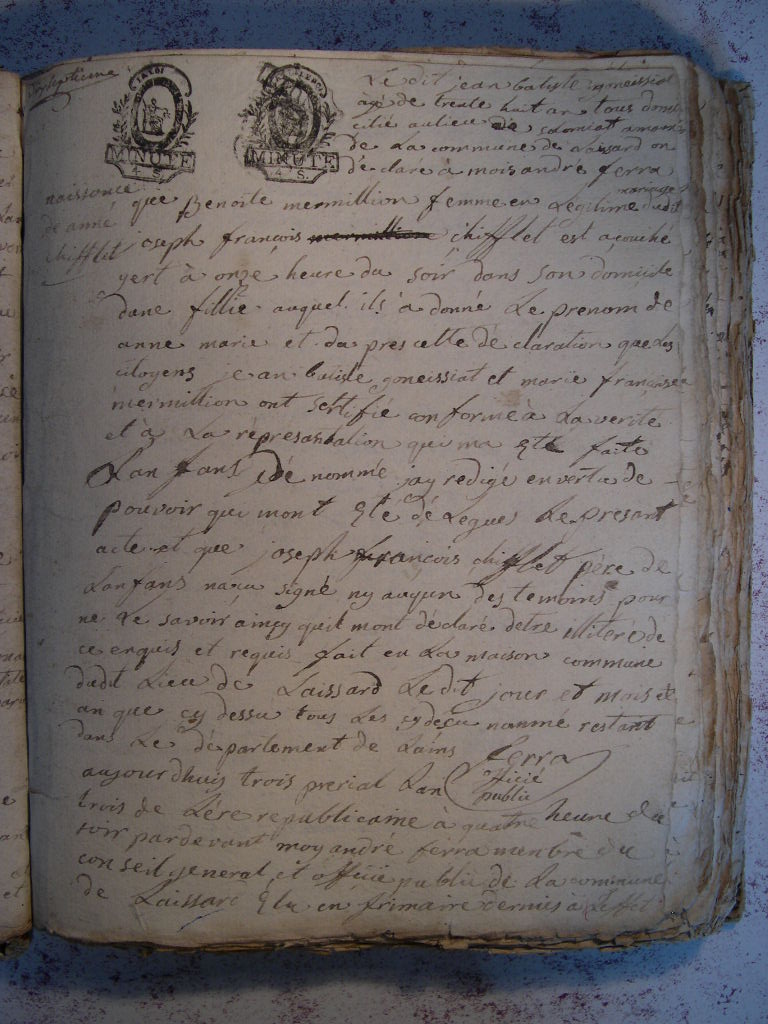 LA LOI
MINUTE
4. S.
MINUTE
4. S.
Le dit jean batiste goneissiat
agé de trente huit an tous domi
cilié au lieu de
de La commune de Laissard on
déclaré à moi andre ferra
naissance
de anne
chifflet
mariage
que Benoite mermillion femme en Legitime dudit
joseph françois mermillion chifflet est acouché
yert à onze heure du soir dans son domicile
dune fillie auquel ils a donné Le prenom de
anne marie et da pres cette déclaration que Les
citoyens jean batiste goneissiat et marie françoise
mermillion ont sertifié conforme à La verite
et à La représantation qui ma été faite
Lanfans idé nommé jay redigé en vertu de
pouvoir qui mont été délegués Le presant
acte et que joseph françois chifflet père de
Lanfans naya signé ny auqun des temoins pour
ne Le savoir ainçy quil mont déclaré dêtre illiteré de
ce enquis et requis fait en La maison commune
dudit Lieu de Laissard Le dit jour et mois et
an que cy dessu tous Les cydeçu nommé restant
dans Le département de Lains ferra
officié
public
aujourdhuis trois prerial Lan
trois de Lére republicaine à quatre heure du
soir pardevant moy andre ferra menbre du
conseil general et officié public de La commune
de Laissard élu en frimaire dernies a Leffet